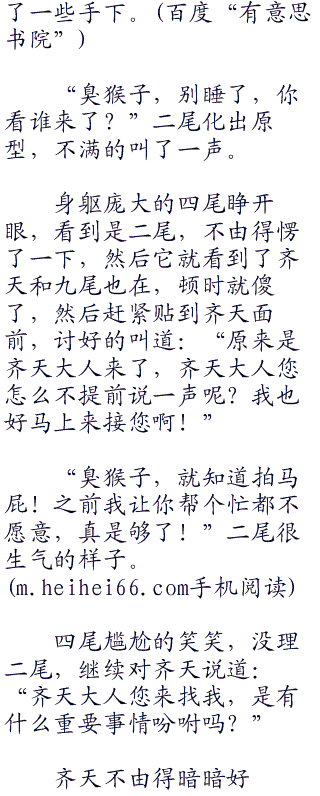 了一些手下。(百度“有意思
书院”)
“臭猴子，别睡了，你
看谁来了？”二尾化出原
型，不满的叫了一声。
身躯庞大的四尾睁开
眼，看到是二尾，不由得愣
了一下，然后它就看到了齐
天和九尾也在，顿时就傻
了，然后赶紧贴到齐天面
前，讨好的叫道：“原来是
齐天大人来了，齐天大人您
怎么不提前说一声呢？我也
好马上来接您啊！”
“臭猴子，就知道拍马
屁！之前我让你帮个忙都不
愿意，真是够了！”二尾很
生气的样子。
(m.heihei66.com手机阅读)
四尾尴尬的笑笑，没理
二尾，继续对齐天说道：
“齐天大人您来找我，是有
什么重要事情吩咐吗？”
齐天不由得暗暗好